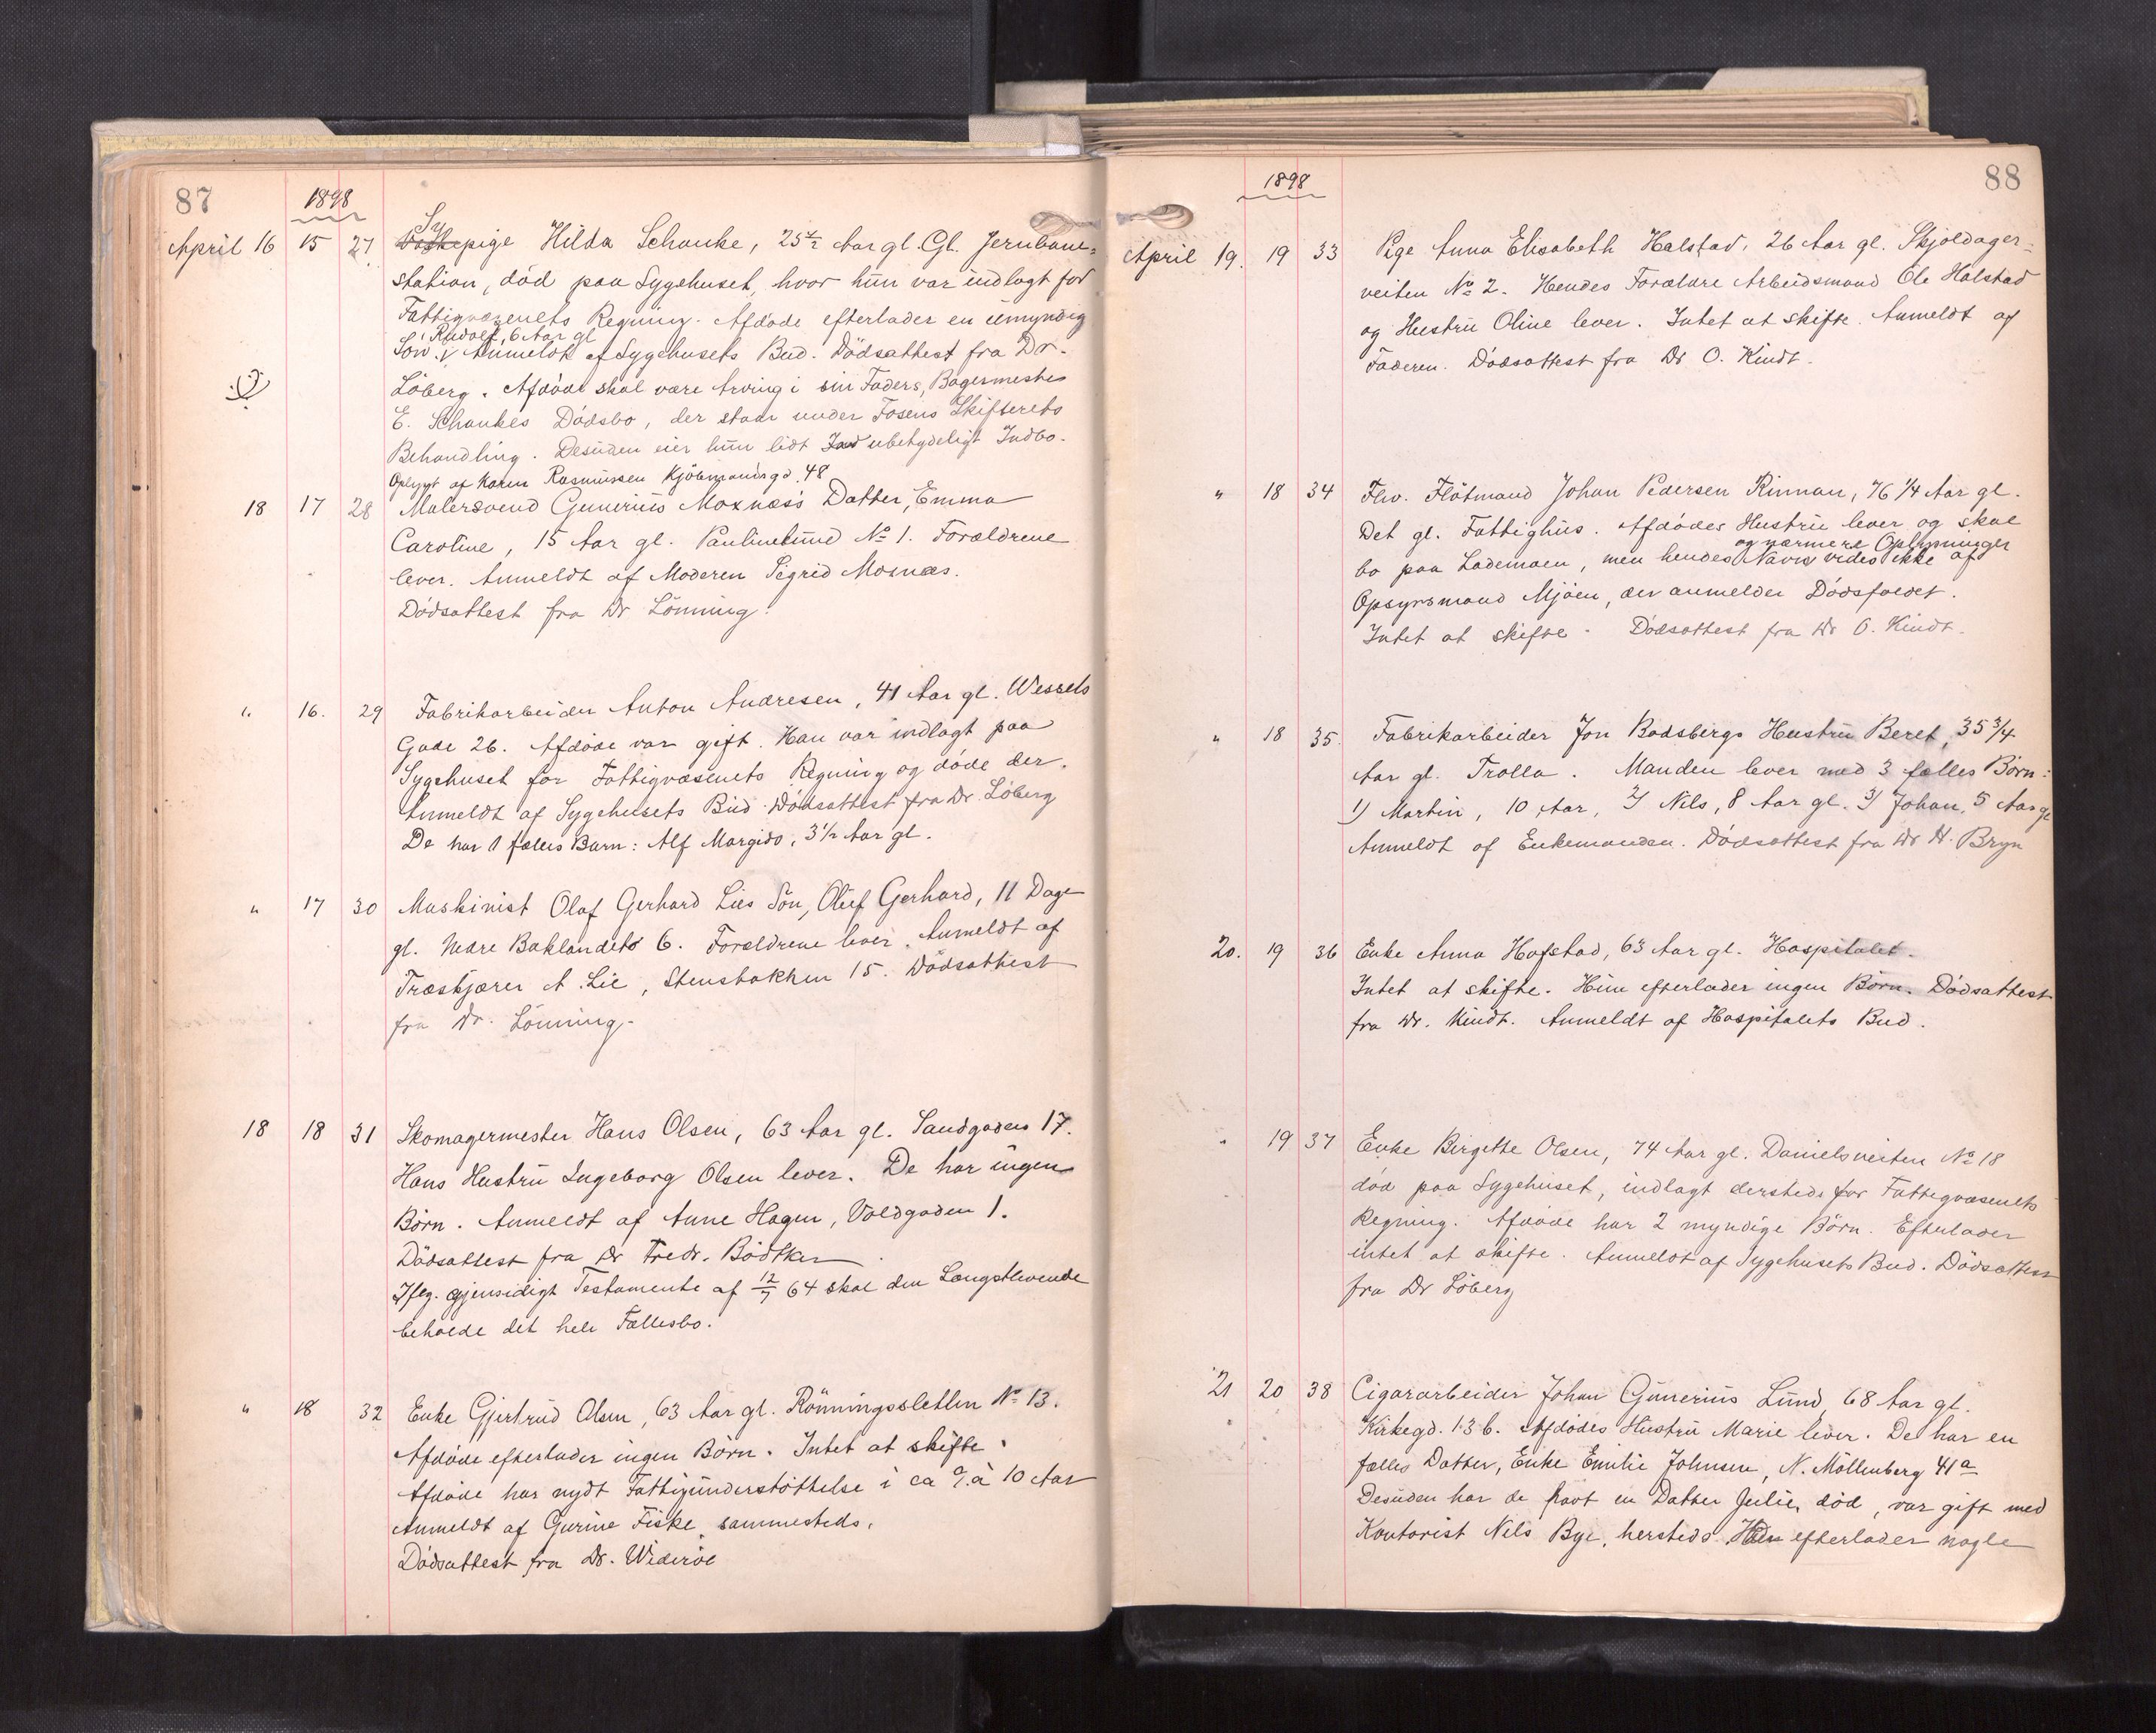 87
1898
April 16 15 27 Sy
Vaskepige Hilda Schanke, 25 1/2 Aar gl. Gl. Jernbane-
station, død paa Sygehuset, hvor hun var indlagt for
Fattigvæsenets Regning. Afdøde efterlader en umyndig
Rudolf, 6 Aar gl
Søn. Anmeldt af Sygehusets Bud. Dødsattest fra Dr.
Löberg. Afdøde skal være Arving i sin Faders, Bagermester
E. Schankes Dødsbo, der staar under Fosens Skifterets
Behandling. Desuden eier hun lidt Ind ubetydeligt Indbo.
Oplyst af Karen Rasmussen Kjöbmandsgd. 48
18 17 28 Malersvend Gunerius Moxness Datter, Emma
Caroline, 15 Aar gl. Paulinelund No 1. Forældrene
lever. Anmeldt af Moderen Sigrid Moxnæs.
Dødsattest fra Dr Lönning.
" 16. 29 Fabrikarbeider Anton Andresen, 41 Aar gl. Wessels
Gade 26. Afdøde var gift. Han var indlagt paa
Sygehuset for Fattigvæsenets Regning og døde der.
Anmeldt af Sygehusets Bud. Dødsattest fra Dr. Löberg
De har 1 fælles Barn: Alf Margido, 3 1/2 Aar gl.
" 17 30 Maskinist Olaf Gerhard Lies Søn, Oluf Gerhard, 11 Dage
gl. Nedre Baklandet 6. Forældrene lever. Anmeldt af
Træskjærer A. Lie, Stensbakken 15. Dødsattest
fra Dr. Lönning.
18 18 31 Skomagermester Hans Olsen, 63 Aar gl. Sandgaden 17.
Hans Hustru Ingeborg Olsen lever. De har ingen
Børn. Anmeldt af Anne Hagen, Voldgaden 1.
Dødsattest fra Dr Fredr. Bödtker
Iflg. gjensidigt Testamente af 12/7 64 skal den Længstlevende
beholde det hele Fællesbo.
" 18 32 Enke Gjertrud Olsen, 63 Aar gl. Rönningsletten No 13.
Afdøde efterlader ingen Børn. Intet at skifte.
Afdøde har nydt Fattigunderstøttelse i ca 9 à 10 Aar
Anmeldt af Gurine Fiske, sammesteds.
Dødsattest fra Dr. Wideröe
88
1898
April 19. 19 33 Pige Anna Elisabeth Halstad, 26 Aar gl. Skjoldager-
veiten No 2. Hendes Forældre Arbeidsmand Ole Halstad
og Hustru Oline lever. Intet at skifte. Anmeldt af
Faderen. Dødsattest fra Dr O. Kindt.
" 18 34 Fhv. Flötmand Johan Pedersen Rinnan, 76 1/4 Aar gl.
Det gl. Fattighus. Afdødes Hustru lever og skal
og nærmere Oplysninger
bo paa Lademoen, men hendes Navn vides ikke af
Opsynsmand Mjöen, der anmelder Dødsfaldet.
Intet at skifte. Dødsattest fra Dr O. Kindt.
" 18 35. Fabrikarbeider Jon Bodsbergs Hustru Beret, 35 3/4
Aar gl. Trolla. Manden lever med 3 fælles Børn:
1) Martin, 10 Aar, 2) Nils, 8 Aar gl. 3) Johan, 5 Aar gl
Anmeldt af Enkemanden. Dødsattest fra Dr H. Bryn
20. 19 36 Enke Anna Hofstad, 63 Aar gl. Hospitalet.
Intet at skifte. Hun efterlader ingen Børn. Dødsattest
fra Dr. Kindt. Anmeldt af Hospitalets Bud.
" 19 37 Enke Birgitte Olsen, 74 Aar gl. Danielsveiten No 18
død paa Sygehuset, indlagt dersteds for Fattigvæsenets
Regning. Afdøde har 2 myndige Børn. Efterlader
intet at skifte. Anmeldt af Sygehusets Bud. Dødsattest
fra Dr Löberg
21 20 38 Cigararbeider Johan Gunerius Lund, 68 Aar gl.
Kirkegd. 136. Afdødes Hustru Marie lever. De har en
fælles Datter, Enke Emilie Johnsen, N. Möllenberg 41a
Desuden har de havt en Datter Julie, død, var gift med
Kontorist Nils Bye, hersteds. Hun efterlader nogle